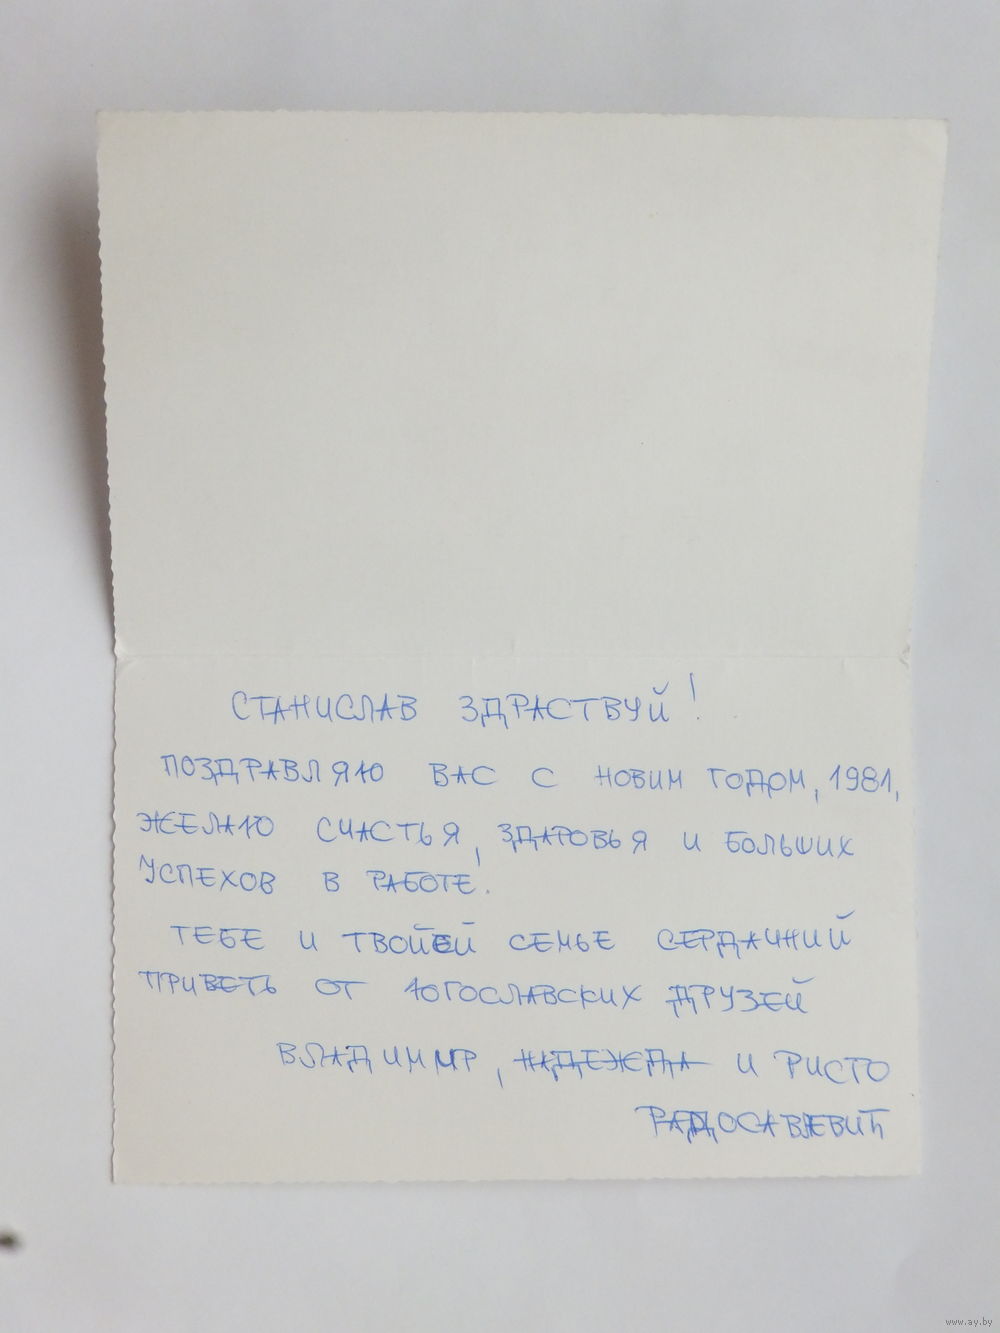 СТАНИСЛАВ ЗДРАСТВУЙ!
ПОЗДРАВЛЯЮ ВАС С НОВИМ ГОДОМ, 1981,
ЖЕЛАЮ СЧАСТЬЯ, ЗДАРОВЬЯ И БОЛЬШИХ
УСПЕХОВ В РАБОТЕ.
ТЕБЕ И ТВОЙЕЙ СЕМЬЕ СЕРДАЧНИЙ
ПРИВЕТЬ ОТ ЮГОСЛАВСКИХ ДРУЗЕЙ
ВЛАДИМИР, НАДЕЖДА И РИСТО
РАДОСАВЉЕВИЋ
www.ay.by